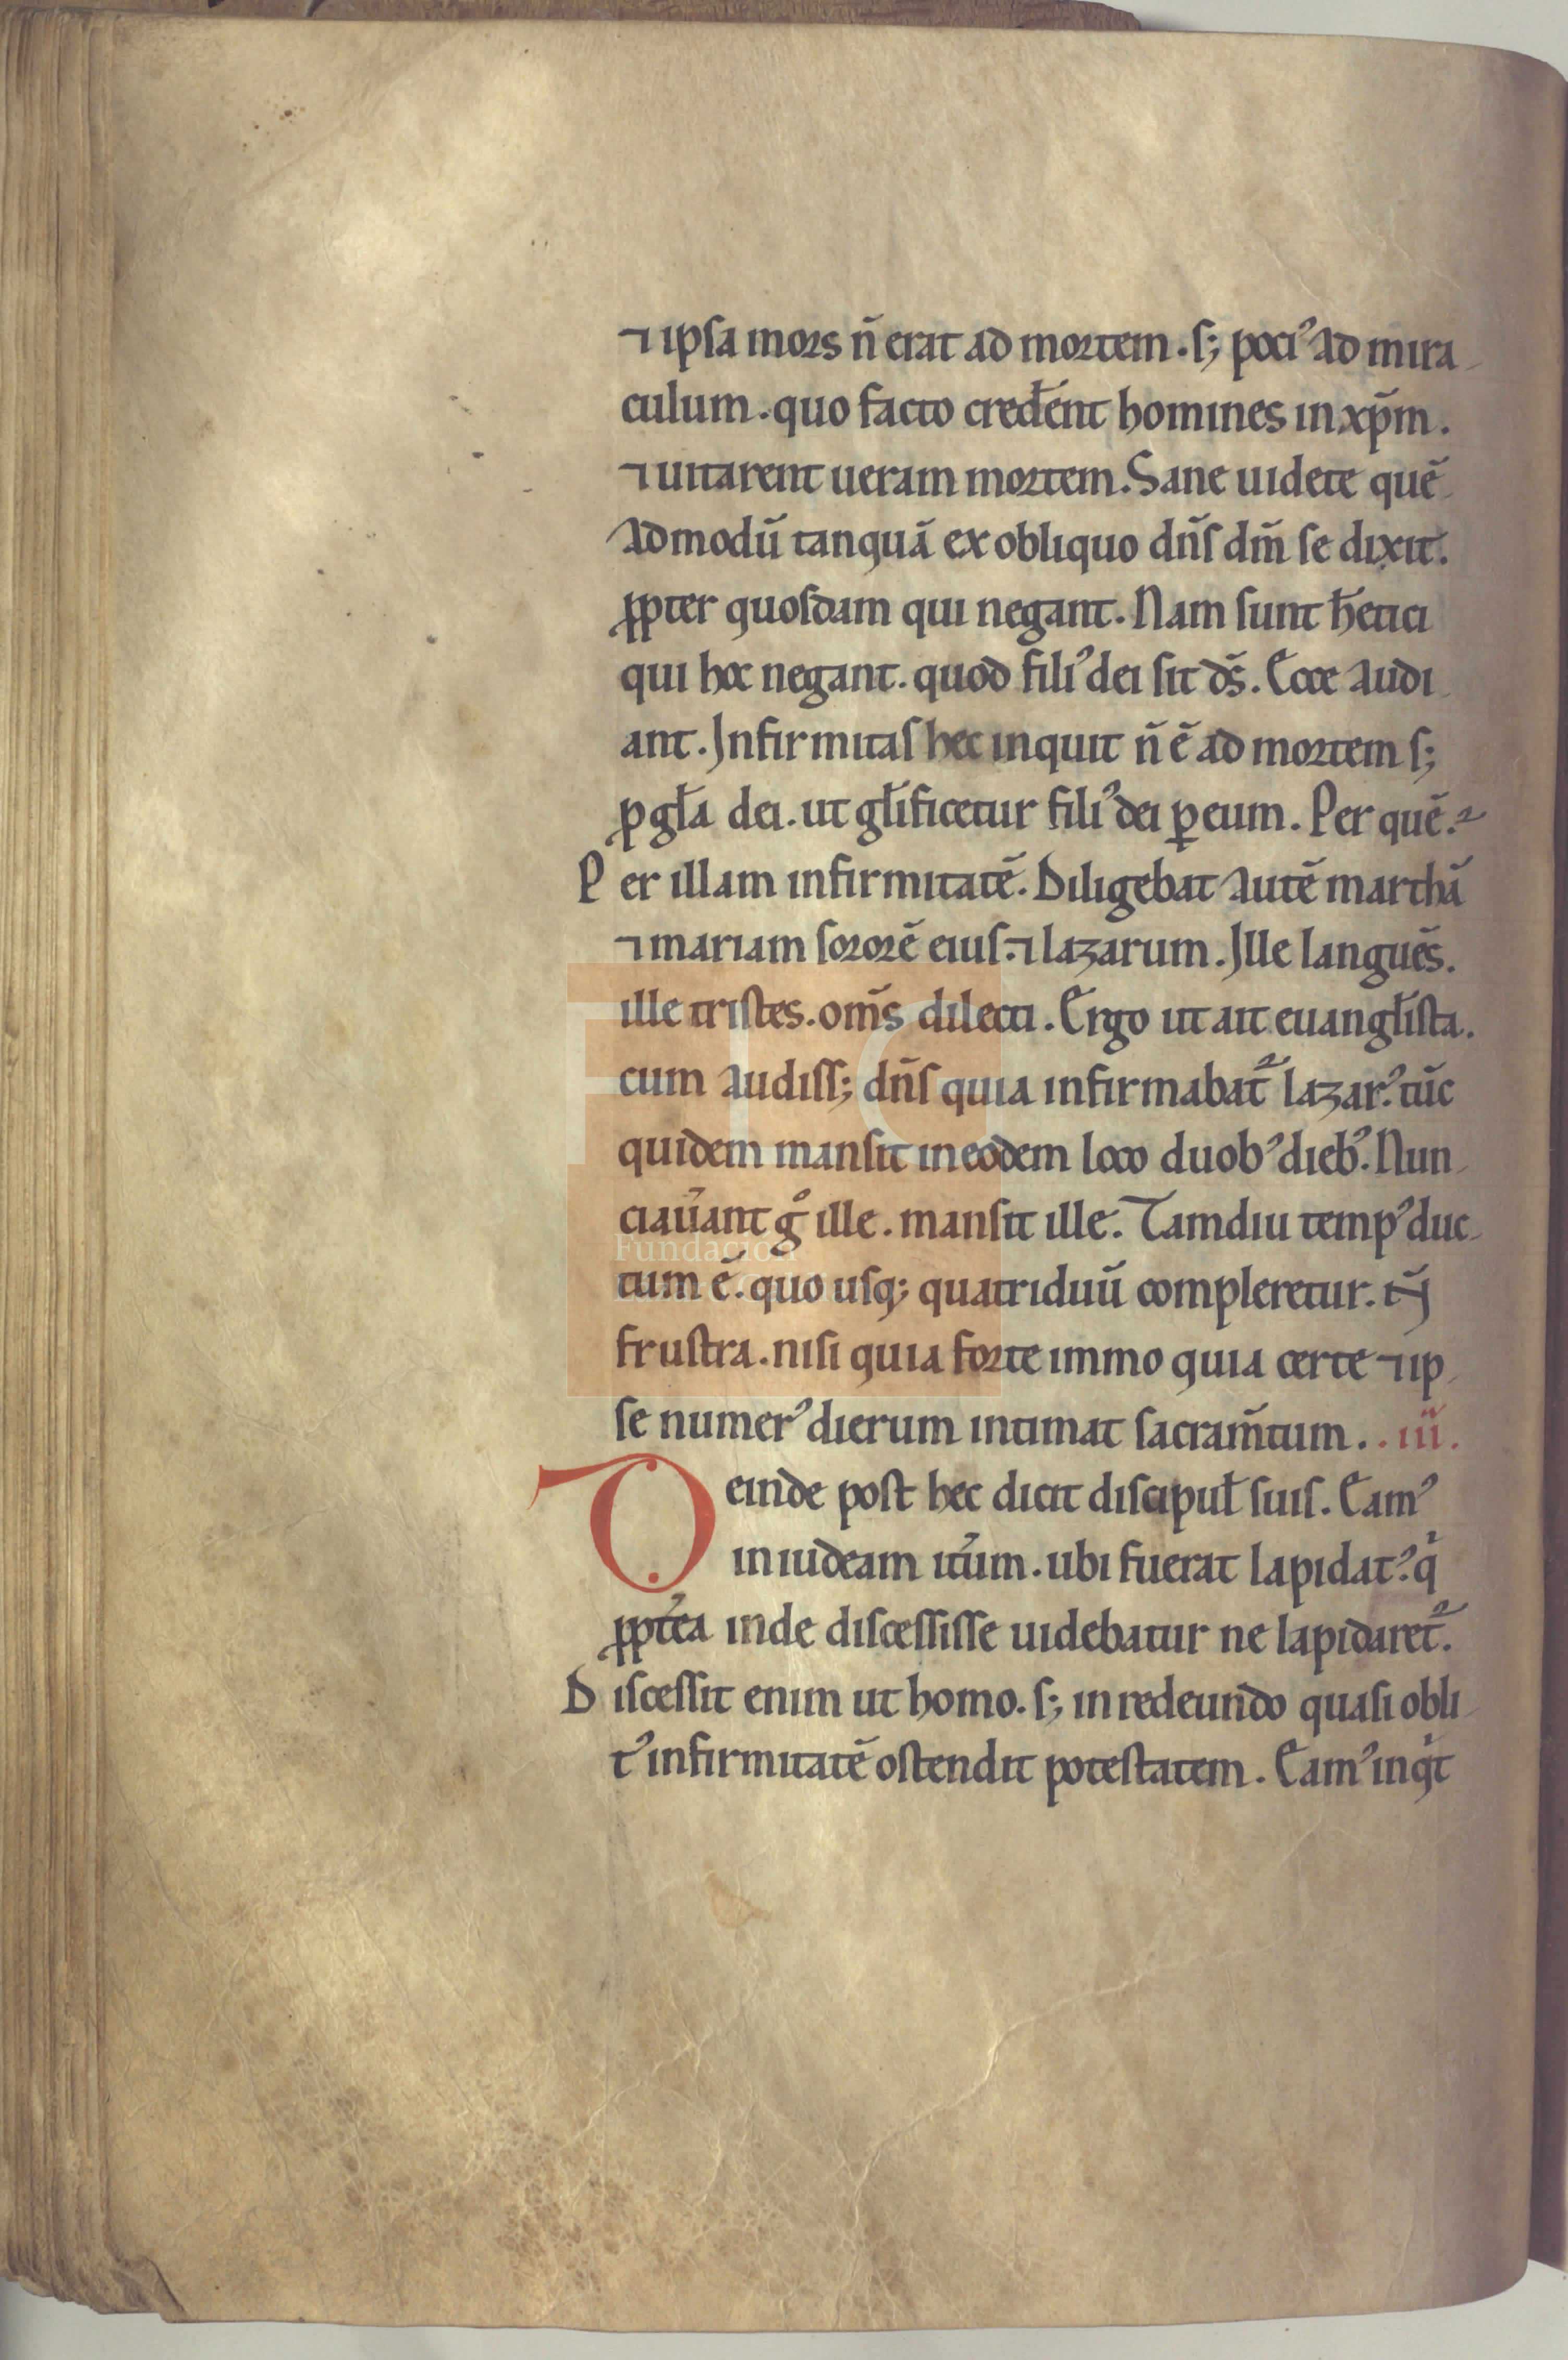 ⁊ ipsa mors n̄ erat ad mortem. s; poci᾽ ad mira
culum. quo facto cred̄ent homines in xp̄m.
⁊ uitarent ueram mortem. Sane uidete quē
admodū tanquā ex obliquo dn̄s dm̄ se dixit.
ꝓpter quosdam qui negant. Nam sunt h̄etici
qui hoc negant. quod fili᾽ dei sit ds̄. Ecce audi
ant. Infirmitas hec inquit n̄ ē ad mortem s;
ꝓ gl̄a dei. ut gl̄ificetur fili᾽ dei ꝑ eum. Per quē.
Per illam infirmitatē. Diligebat autē marthā
⁊ mariam sororē eius. ⁊ lazarum. Ille languēs.
ille tristes. om̄s dilecti. Ergo ut ait euangl̄ista.
cum audiss; dn̄s quia infirmabat᷑ lazar᾽. tūc
quidem mansit in eodem loco duob᾽ dieb᾽. Nun
ciau̅ant gͦ ille. mansit ille. Tamdiu temp᾽ duc
tum ē. quo usq; quatriduū compleretur. n̄
frustra. nisi quia forte immo quia certe ⁊ ip
se numer᾽ dierum intimat sacram̄tum. . iii.
Deinde post hec dicit discipul̄ suis. Eam᾽
in iudeam it̄um. ubi fuerat lapidat᾽. qͥ
ꝓpt̄ea inde discessisse uidebatur ne lapidaret᷑.
Discessit enim ut homo. s; in redeundo quasi obli
t᾽ infirmitatē ostendit potestatem. Eam᾽ inqͥt
Fundación